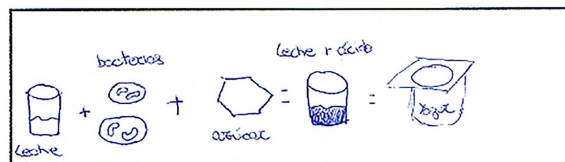 bacterias
Leche y ácido
Leche
azúcar
Yogur